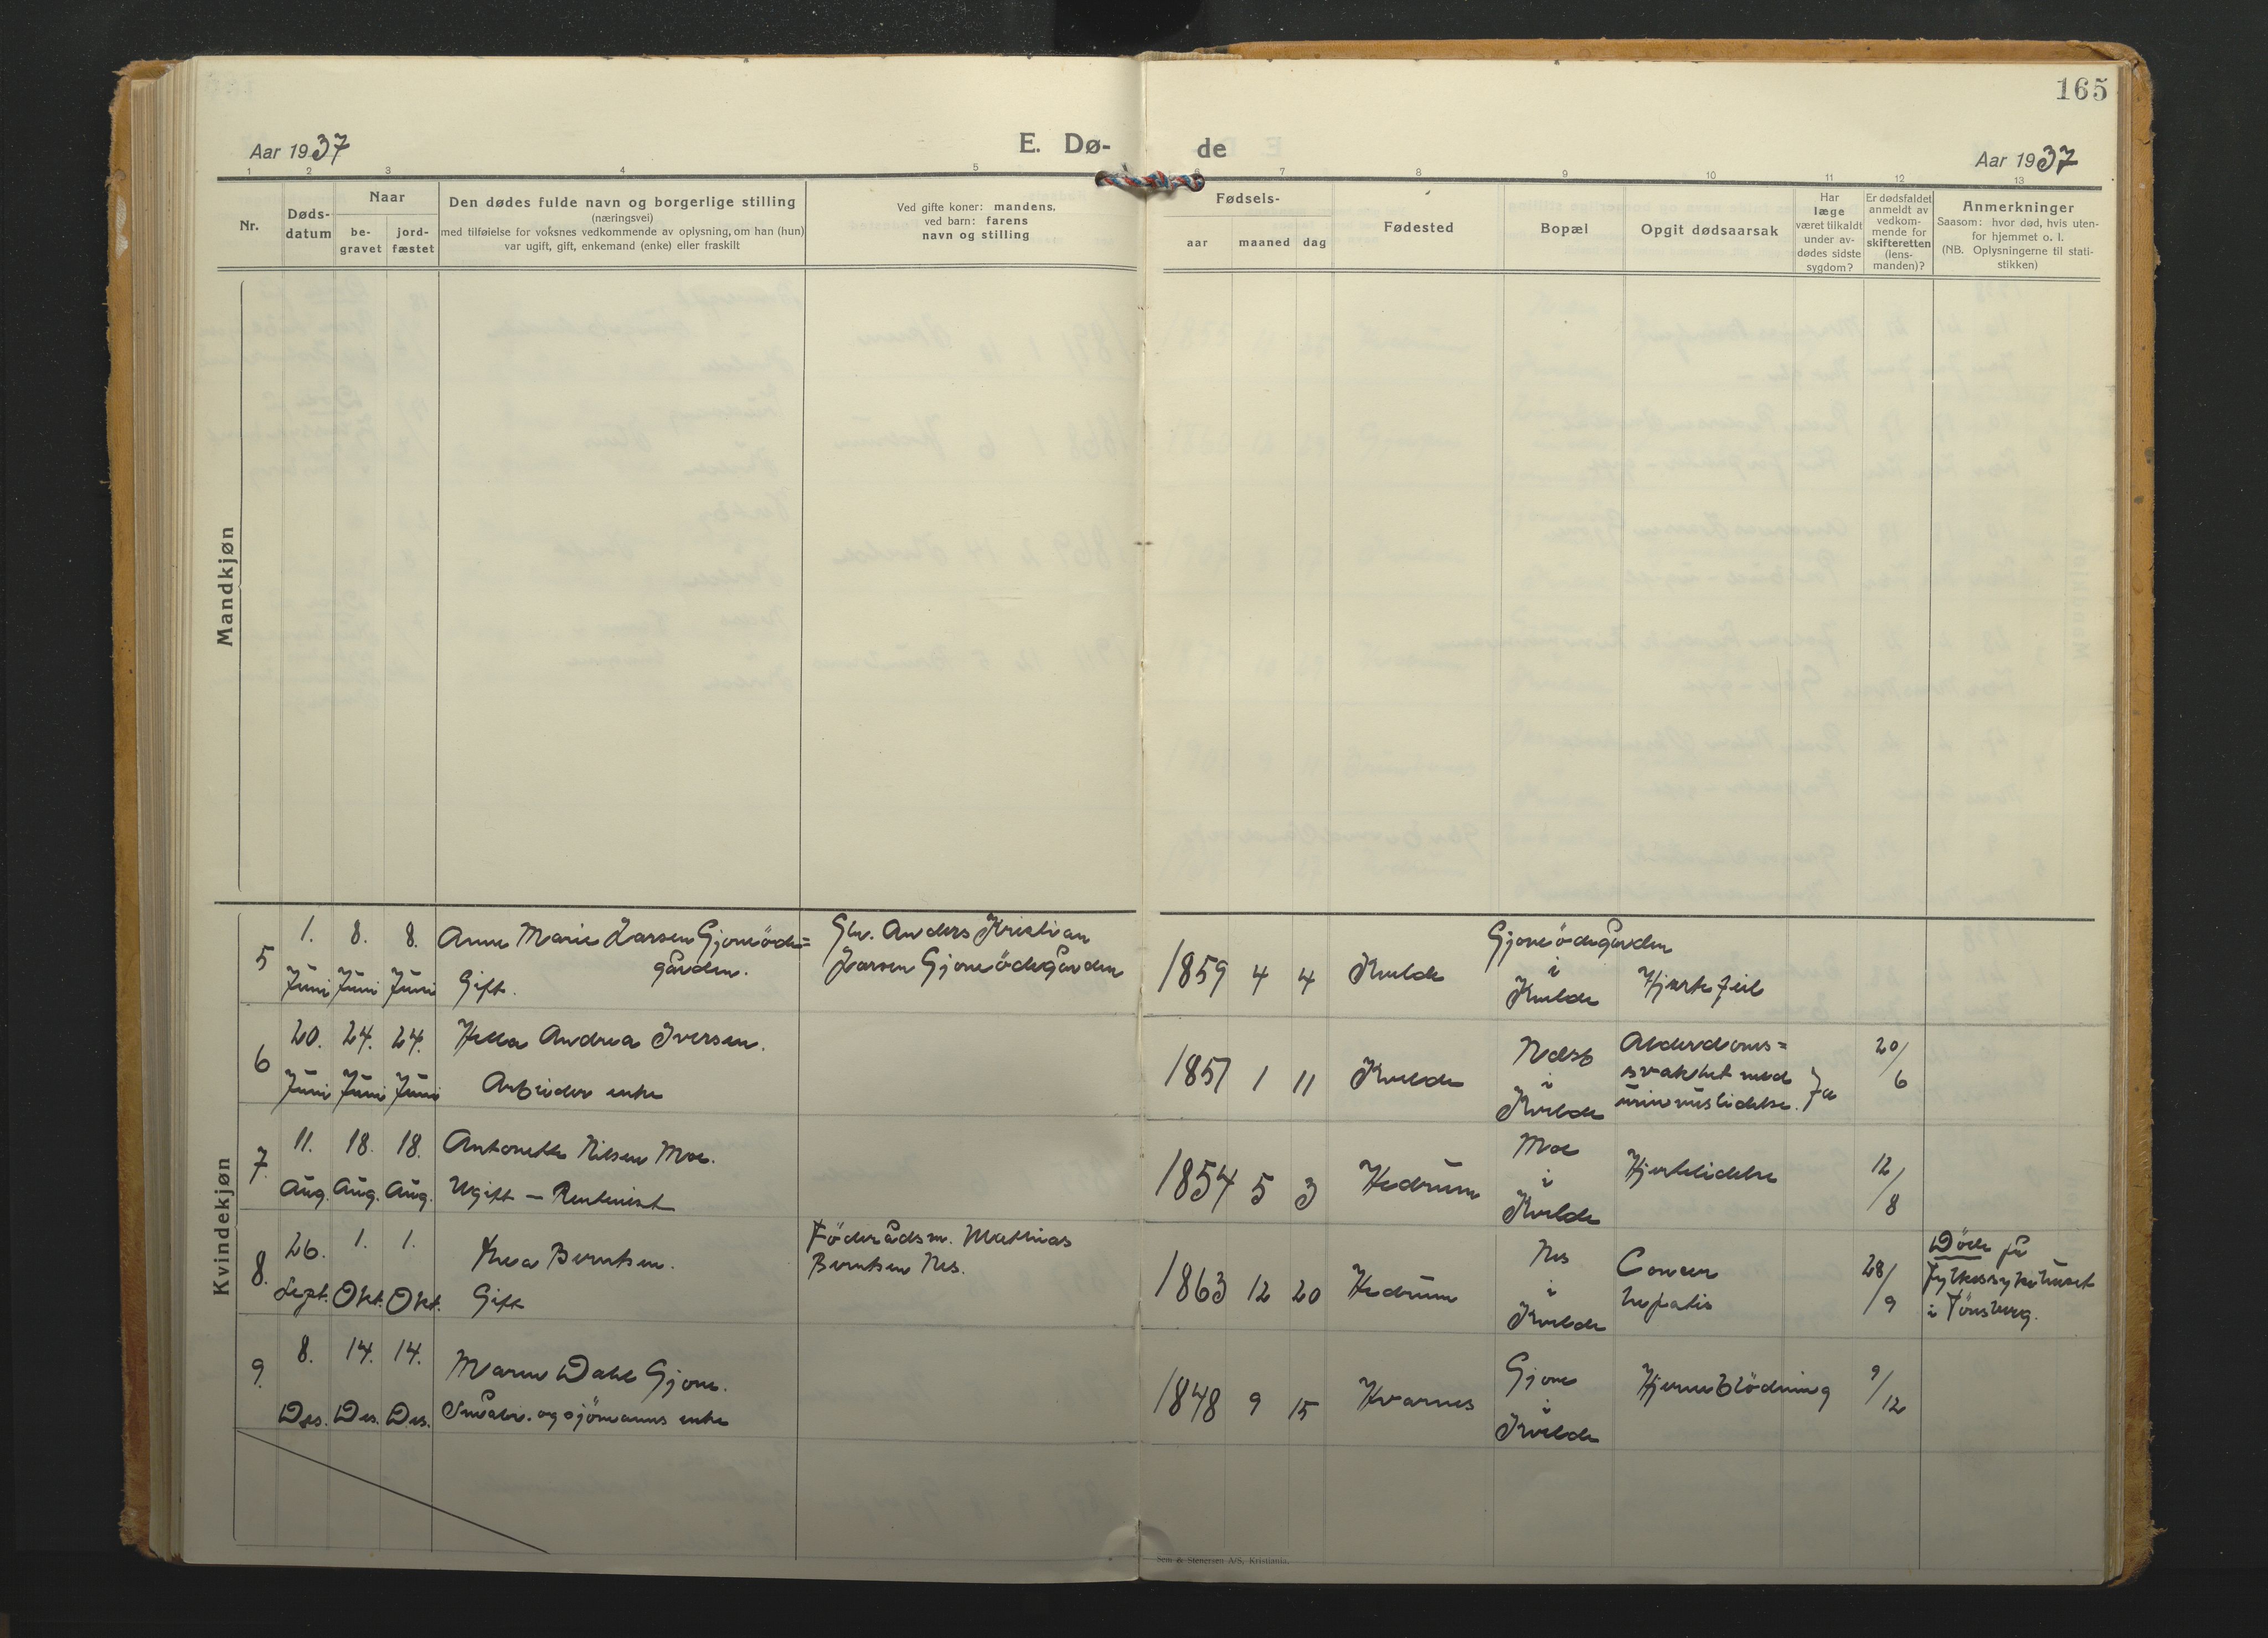 165
Aar 1937
E. Dø-
de
Aar 1937
1 2 3 4 5 6 7 8 9 10 11 12 13
Nr.
Døds-
datum
Naar
be-
gravet
jord-
fæstet
Den dødes fulde navn og borgerlige stilling
(næringsvei)
med tilføielse for voksnes vedkommende av oplysning, om han (hun)
var ugift, gift, enkemand (enke) eller fraskilt
Ved gifte koner: mandens.
ved barn: farens
navn og stilling
Fødsels-
aar maaned dag
Fødested
Bopæl
Opgit dødsaarsak
Har
læge
været tilkaldt
under av-
dødes sidste
sygdom?
Er dødsfaldet
anmeldt av
vedkom-
mende for
skifteretten
(lens-
manden)?
Anmerkninger
Saasom: hvor død, hvis uten-
for hjemmet o. l.
(NB. Oplysningerne til stati-
stikken)
Mandkjøn
Kvindekjøn
5
1. 8. 8.
Juni Juni Juni
Anne Marie Larsen Gjoneöde=
gården.
Gift.
Gbr. Anders Kristian
Larsen Gjoneödegården
1859 4 4 Kvelde
Gjoneödegården
i
Kvelde
Hjertefeil
6
20. 24. 24.
Juni Juni Juni
Hella Andrea Iversen.
Arbeider enke
1857 1 11 Kvelde
i
Kvelde
Alderdoms=
svakhet med
Ja
20/
6
7.
11. 18. 18.
Aug. Aug. Aug.
Antonette Nilsen Moe.
Ugift — Rentenist
1854 5 3 Hedrum
Moe
i
Kvelde
Hjertelidelse
12
/8
8.
26. 1. 1.
Sept. Okt. Okt.
Thea Berntsen.
Gift
Föderådsm. Mathias
Berntsen Nes.
1863 12 20 Hedrum
Nes
i
Kvelde
Cancer
hepatis
28/
/9
Döde på
fylkessykehuset
i Tönsberg.
9.
8. 14. 14.
Des. Des. Des.
Maren Dahl Gjone.
Småbr. og sjömanns enke
1848 9 15 Kvarnes
Gjone
i
Kvelde
Hjerneblödning
9/
12
Sem & Stenersen A/S, Kristiania.